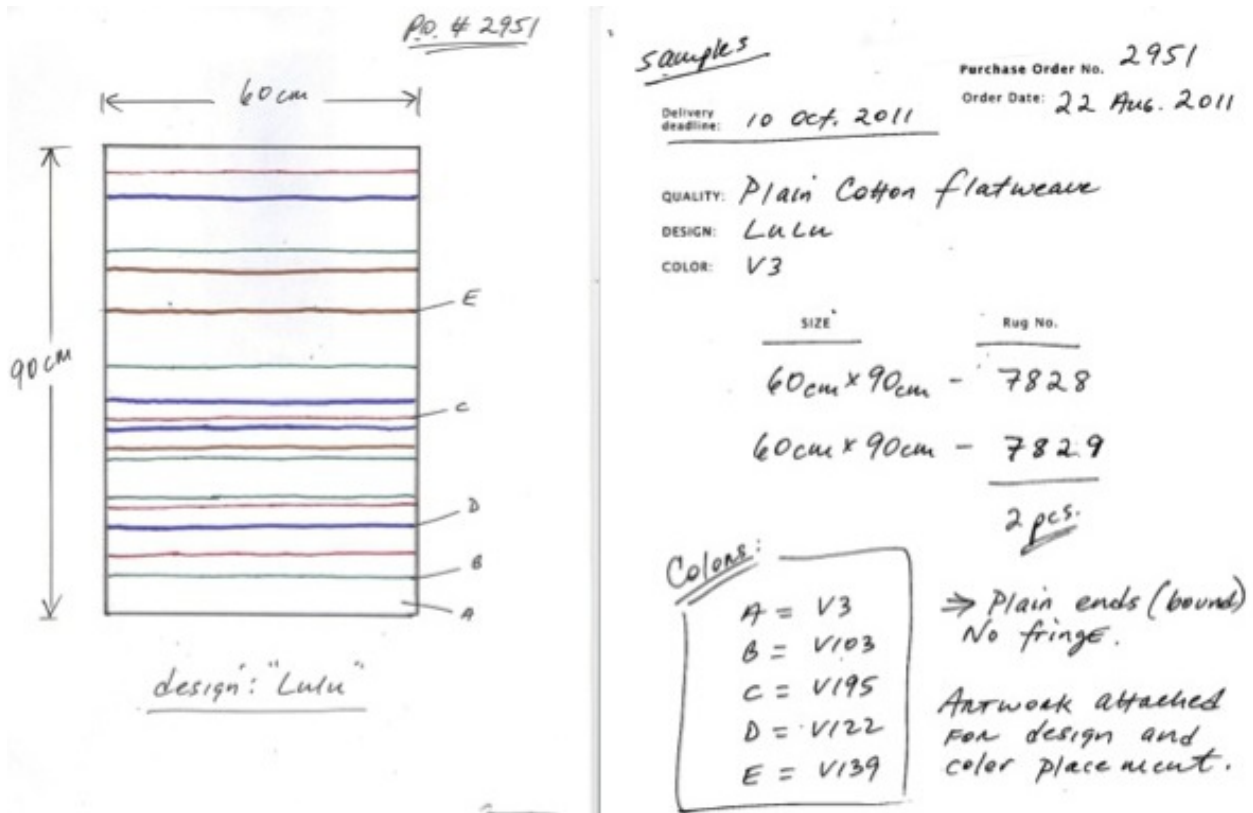 P.O. # 2951
60 cm
90 cm
E
C
D
B
A
design: "Lulu"
samples
Purchase Order No. 2951
Order Date: 22 Aug. 2011
Delivery deadline: 10 Oct. 2011
QUALITY: Plain Cotton flatweave
DESIGN: LuLu
COLOR: V3
SIZE Rug No.
60cm x 90cm - 7828
60cm x 90cm - 7829
2 pcs.
Colors:
A = V3
B = V103
C = V195
D = V122
E = V139
⇒ Plain ends (bound)
No fringe.
Artwork attached
for design and
color placement.